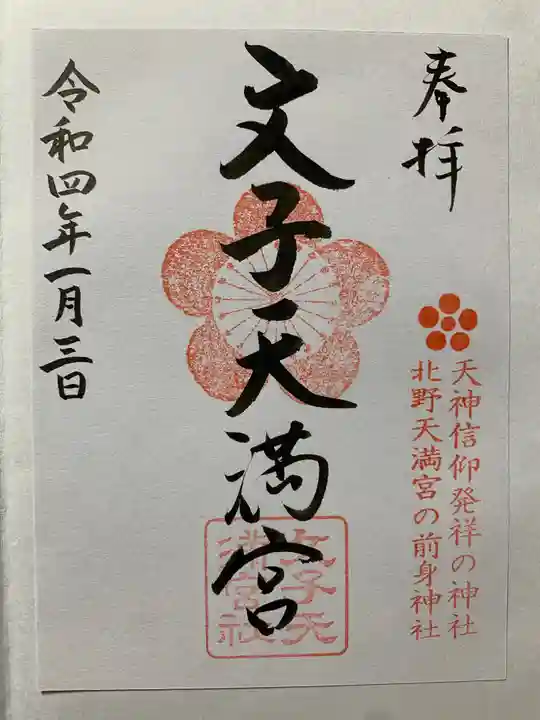 奉拝
天神信仰発祥の神社
北野天満宮の前身神社
文子天満宮
文子天
満宮社
令和四年一月三日